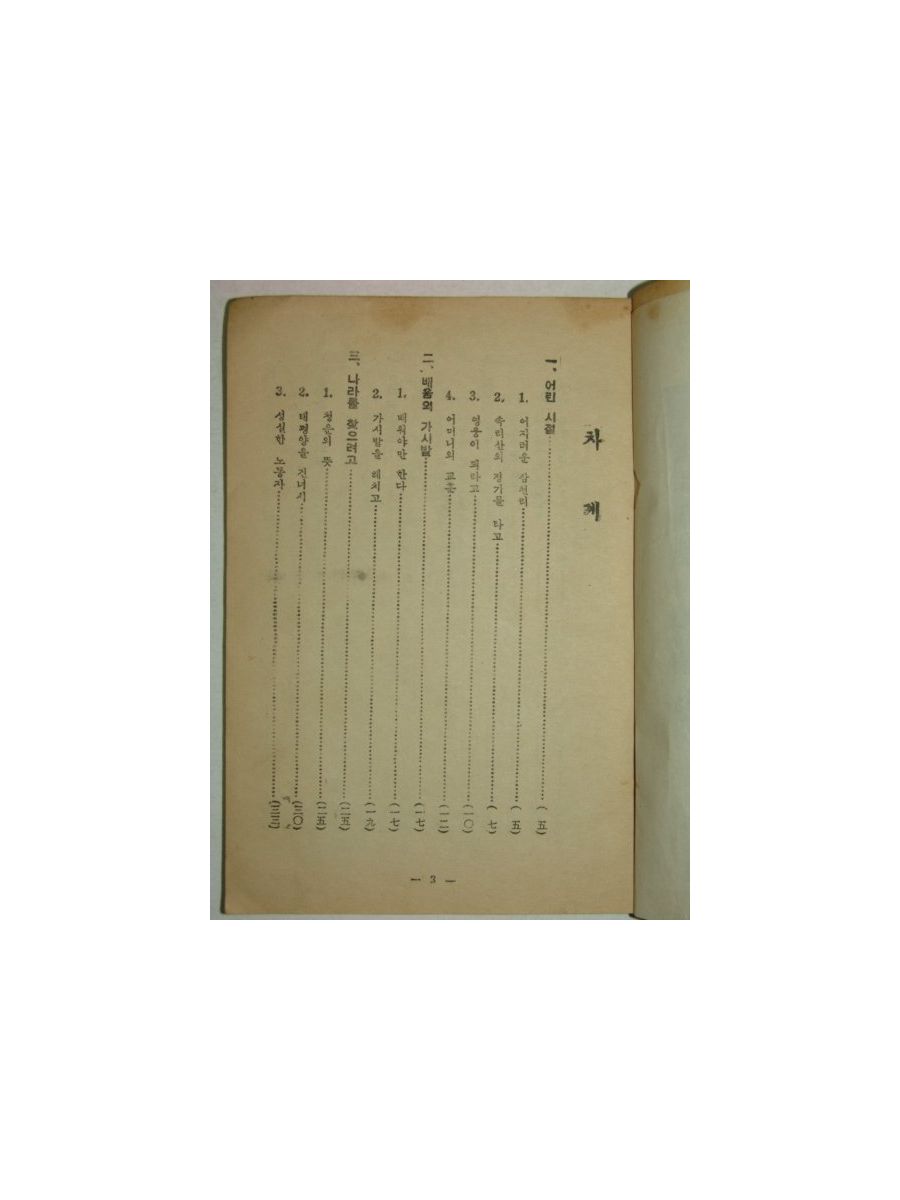 차례
一、어린 시절 (五)
1. 어지러운 삼천리 (五)
2. 속리산의 정기를 타고 (七)
3. 영웅이 되라고 (一〇)
4. 어머니의 교훈 (一二)
二、배움의 가시밭 (一七)
1. 배워야만 한다 (一七)
2. 가시밭을 헤치고 (一九)
三、나라를 찾으려고 (二五)
1. 청운의 뜻 (二五)
2. 태평양을 건너서 (三〇)
3. 성실한 노동자 (三三)
— 3 —